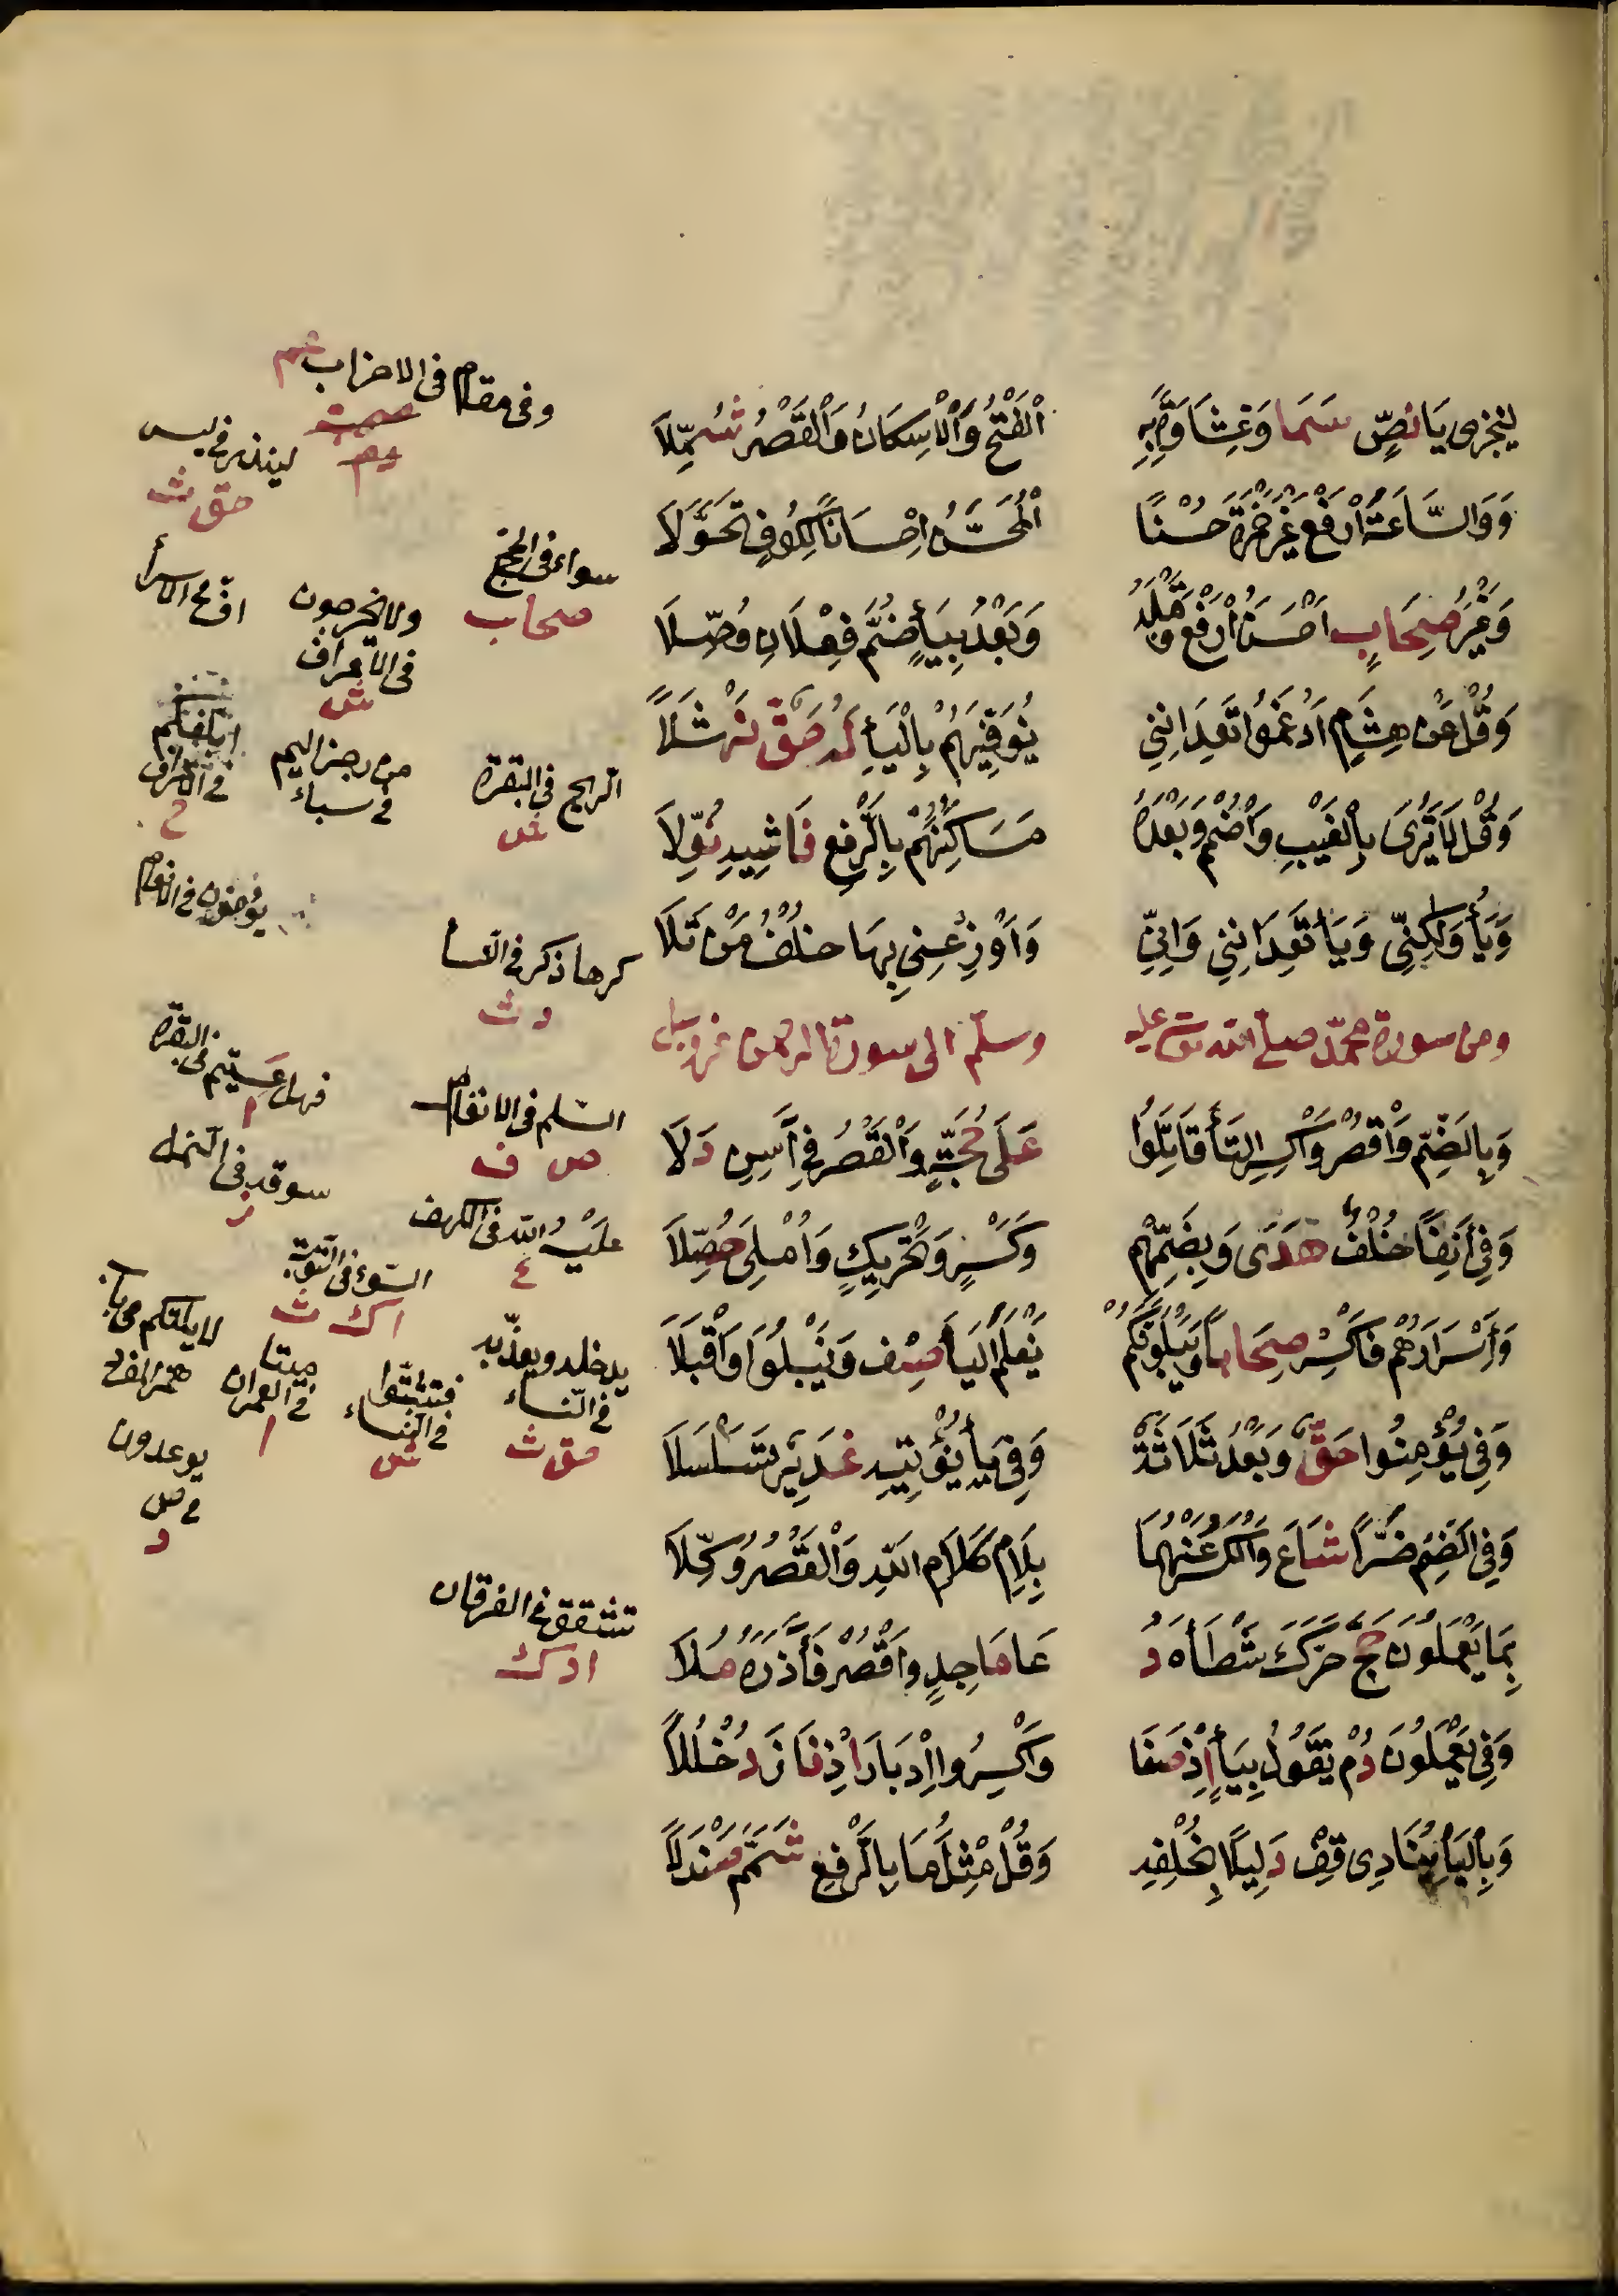 لِيَجْزِىَ يَا نَصٍّ سَمَا وَغِشَاوَةً بِهِ الْفَتْحُ وَالْاِسْكَانُ وَالْقَصْرُ شُمِّلَا
وَوَالسَّاعَةَ ارْفَعْ غَيْرَ حَمْزَةَ حُسْنًا الْمُحَسَّنُ اِحْسَانًا لِكُوفٍ تَحَوَّلَا
وَغَيْرُ صِحَابٍ اَحْسَنَ ارْفَعْ وَقَبْلَهُ وَبَعْدُ بِيَاءٍ ضُمَّ فِعْلَانِ وُصِّلَا
وَقُلْ عَنْ هِشَامٍ اَدْغَمُوا تَعِدَانِنِي نُوَفِّيَهُمْ بِالْيَاءِ لَهُ حَقُّ نَهْشَلَا
وَقُلْ لَا يُرَى بِالْغَيْبِ وَاضْمُمْ وَبَعْدَهُ مَسَاكِنُهُمْ بِالرَّفْعِ فَاشِيهِ نُوِّلَا
وَيَاءُ وَلٰكِنِّى وَيَا تَعِدَانِنِي وَاِنِّي وَاَوْزِعْنِي بِهَا خُلْفُ مَنْ تَلَا
ومن سورة محمّد صلى الله عليه وسلّم الى سورة الرحمن عز وجل
وَبِالضَّمِّ وَاقْصُرْ وَاكْسِرِ التَّاءَ قَاتَلُوا عَلَى حُجَّةٍ وَالْقَصْرُ فِي آسِنٍ دَلَا
وَفِي آنِفًا خُلْفٌ هَدَى وَبِضَمِّهِمْ وَكَسْرٍ وَتَحْرِيكٍ وَاُمْلِىَ حُصِّلَا
وَاَسْرَارَهُمْ فَاكْسِرْ صِحَابًا وَيَبْلُوَنَّكُمْ يَعْلَمَ الْيَا صِفْ وَنَبْلُوَ وَاقْبَلَا
وَفِي يُؤْمِنُوا حَقٌّ وَبَعْدُ ثَلَاثَةٌ وَفِي يَاءِ نُؤْتِيهِ غَدِيرٌ تَسَلْسَلَا
وَفِي الضَّمِّ ضَرًّا شَاعَ وَالْكَسْرُ عَنْهُمَا بِلَامِ كَلَامَ اللّٰهِ وَالْقَصْرُ وُكِّلَا
بِمَا يَعْمَلُونَ حَجَّ حَرَّكَ شَطْأَهُ دُ عَا مَاجِدٍ وَاقْصُرْ فَأَزَرَهُ مُلَا
وَفِي يَعْمَلُونَ دُمْ نَقُولُ بِيَاءٍ اِذْ صَفَا وَاكْسِرُوا اِدْبَارَ اِذْ فَازَ دُخْلُلَا
وَبِالْيَاءِ يُنَادِى قِفْ دَلِيلًا بِخُلْفِهِ وَقُلْ مِثْلُ مَا بِالرَّفْعِ شَمَّمَ صَنْدَلَا
وفى مقام فى الاحزاب
لينذر فى يس
حق ث
سواء فى الحج
صحاب
ولا يخرجون
فى الاعراف
ش
من رجز اليم
فى سباء
الريح فى البقرة
ش
كرها ذكر فى النسا
د ث
فهل عسيتم فى البقرة
ا
السّلم فى الانفال
ص ف
سوقه فى النمل
ز
عليهُ الله فى الكهف
ع
السّوء فى التوبة
ا ك ث
يدخله ويعذبه
فى النساء
حق ث
فتثبّتوا
فى النساء
ش
ميتا
فى العمران
ا
يوعدون
فى ص
د
تشقق فى الفرقان
ا د ك